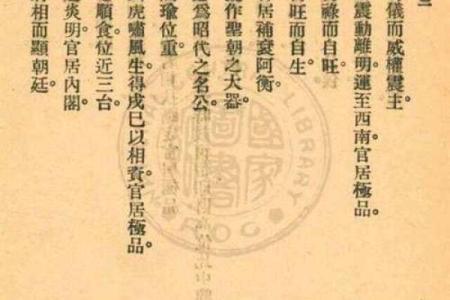 三
儀而威權震主。
震動離明運至西南官居極品。
祿而自旺。
旺而自生。
居補袞阿衡。
作聖朝之大器。
為昭代之名公。
瑜位重
虎嘯風生得戌巳以相資官居極品。
順食位近三台。
炎明官居內閣。
相而顯朝廷。
國家圖書
LIBRARY
ROC